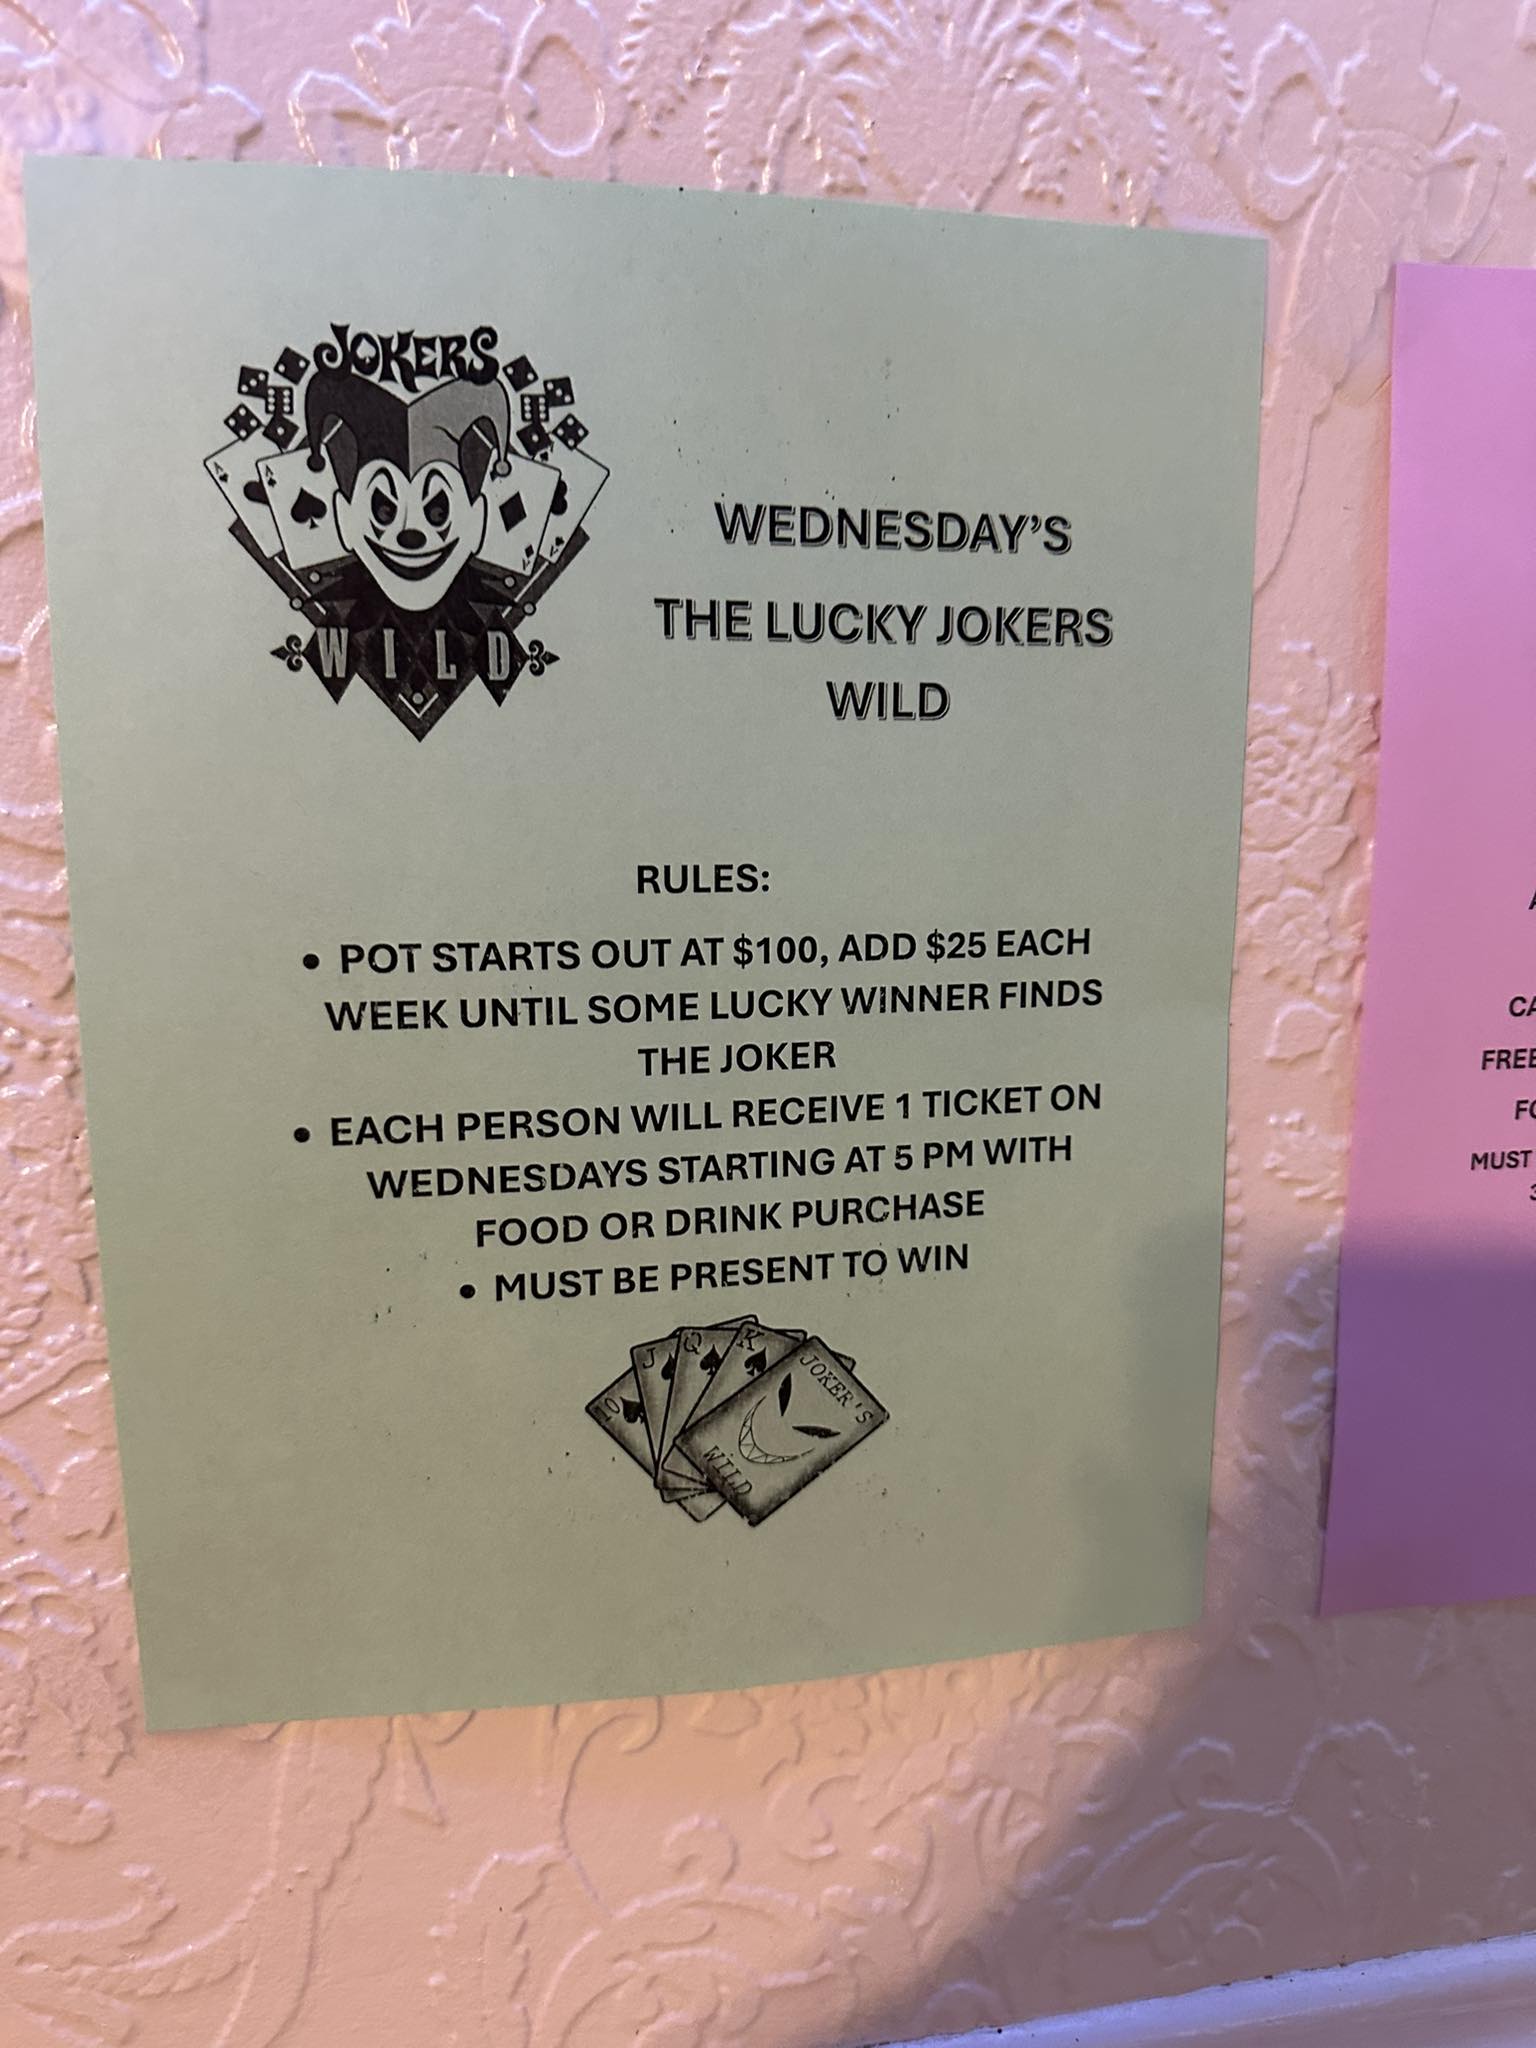 JOKERS
WILD
WEDNESDAY'S
THE LUCKY JOKERS
WILD
RULES:
• POT STARTS OUT AT $100, ADD $25 EACH
WEEK UNTIL SOME LUCKY WINNER FINDS
THE JOKER
• EACH PERSON WILL RECEIVE 1 TICKET ON
WEDNESDAYS STARTING AT 5 PM WITH
FOOD OR DRINK PURCHASE
• MUST BE PRESENT TO WIN
10 J Q K
JOKER'S
WILD
FREE
MUST